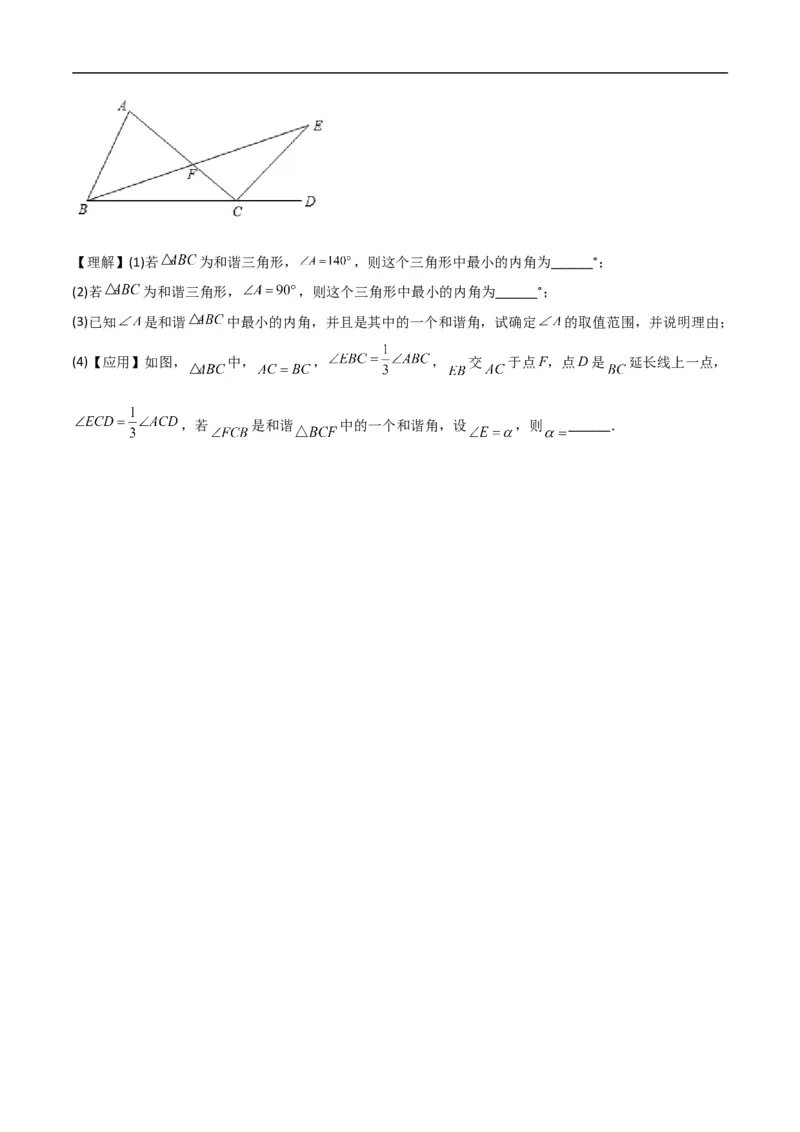 A
E
F
B
C
D
【理解】(1)若△ABC 为和谐三角形，∠A=140°，则这个三角形中最小的内角为______°；
(2)若△ABC 为和谐三角形，∠A=90°，则这个三角形中最小的内角为______°；
(3)已知∠A 是和谐△ABC 中最小的内角，并且是其中的一个和谐角，试确定∠A 的取值范围，并说明理由；
(4)【应用】如图，△ABC 中，AC=BC，∠EBC=1/3∠ABC，EB 交 AC 于点F，点D是 BC 延长线上一点，
∠ECD=1/3∠ACD，若∠FCB 是和谐△BCF 中的一个和谐角，设∠E=α，则α=______．